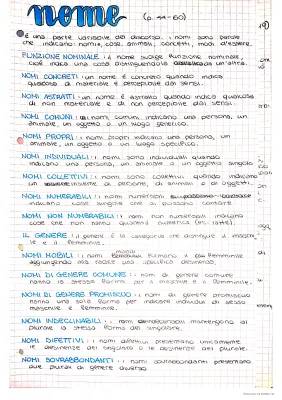 nome
(p. 44-60)
È una parte variabile del discorso. i nomi sono parole
che indicano: nomi, cose, animali, concetti, modi d'essere.
FUNZIONE NOMINALE: il nome svolge funzione nominale,
cioè indica una cosa distinguendola da un'altra.
NOMI CONCRETI: un nome è concreto quando indica
qualcosa di materiale e percepibile dai sensi.
NOMI ASTRATTI: un nome è astratto quando indica qualcosa
di non materiale e di non percepibile dai sensi.
NOMI COMUNI: i nomi comuni indicano una persona, un
animale, un oggetto o un luogo generico.
NOMI PROPRI: i nomi propri indicano una persona, un
animale, un oggetto o un luogo specifico.
NOMI INDIVIDUALI: i nomi sono individuali quando
indicano una persona, un animale o un oggetto singolo
NOMI COLLETTIVI: i nomi sono collettivi quando indicano
un insieme di persone, di animali o di oggetti.
NOMI NUMERABILI: i nomi numerabili
indicano singole cose che si possono contare
NOMI NON NUMERABILI: i nomi non numerabili indicano
cose che non hanno quantità numerica (es: latte).
IL GENERE: il genere è la categoria che distingue il maschi-
le e il femminile.
NOMI MOBILI: i nomi mobili formano il femminile
aggiungendo alla radice una specifica desinenza.
NOMI DI GENERE COMUNE: i nomi di genere comune
hanno la stessa forma per il maschile e il femminile.
NOMI DI GENERE PROMISCUO: i nomi di genere promiscuo
hanno una sola forma per indicare individui di sesso
maschile e femminile.
NOMI INDECLINABILI: i nomi indeclinabili mantengono al
plurale la stessa forma del singolare.
NOMI DIFETTIVI: i nomi difettivi presentano unicamente
le desinenze del singolare o le desinenze del plurale.
NOMI SOVRABBONDANTI: i nomi sovrabbondanti presentano
due plurali di genere diverso